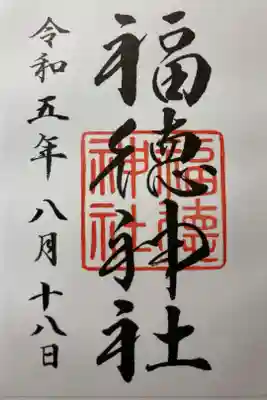 福徳神社
福徳神社
令和五年八月十八日